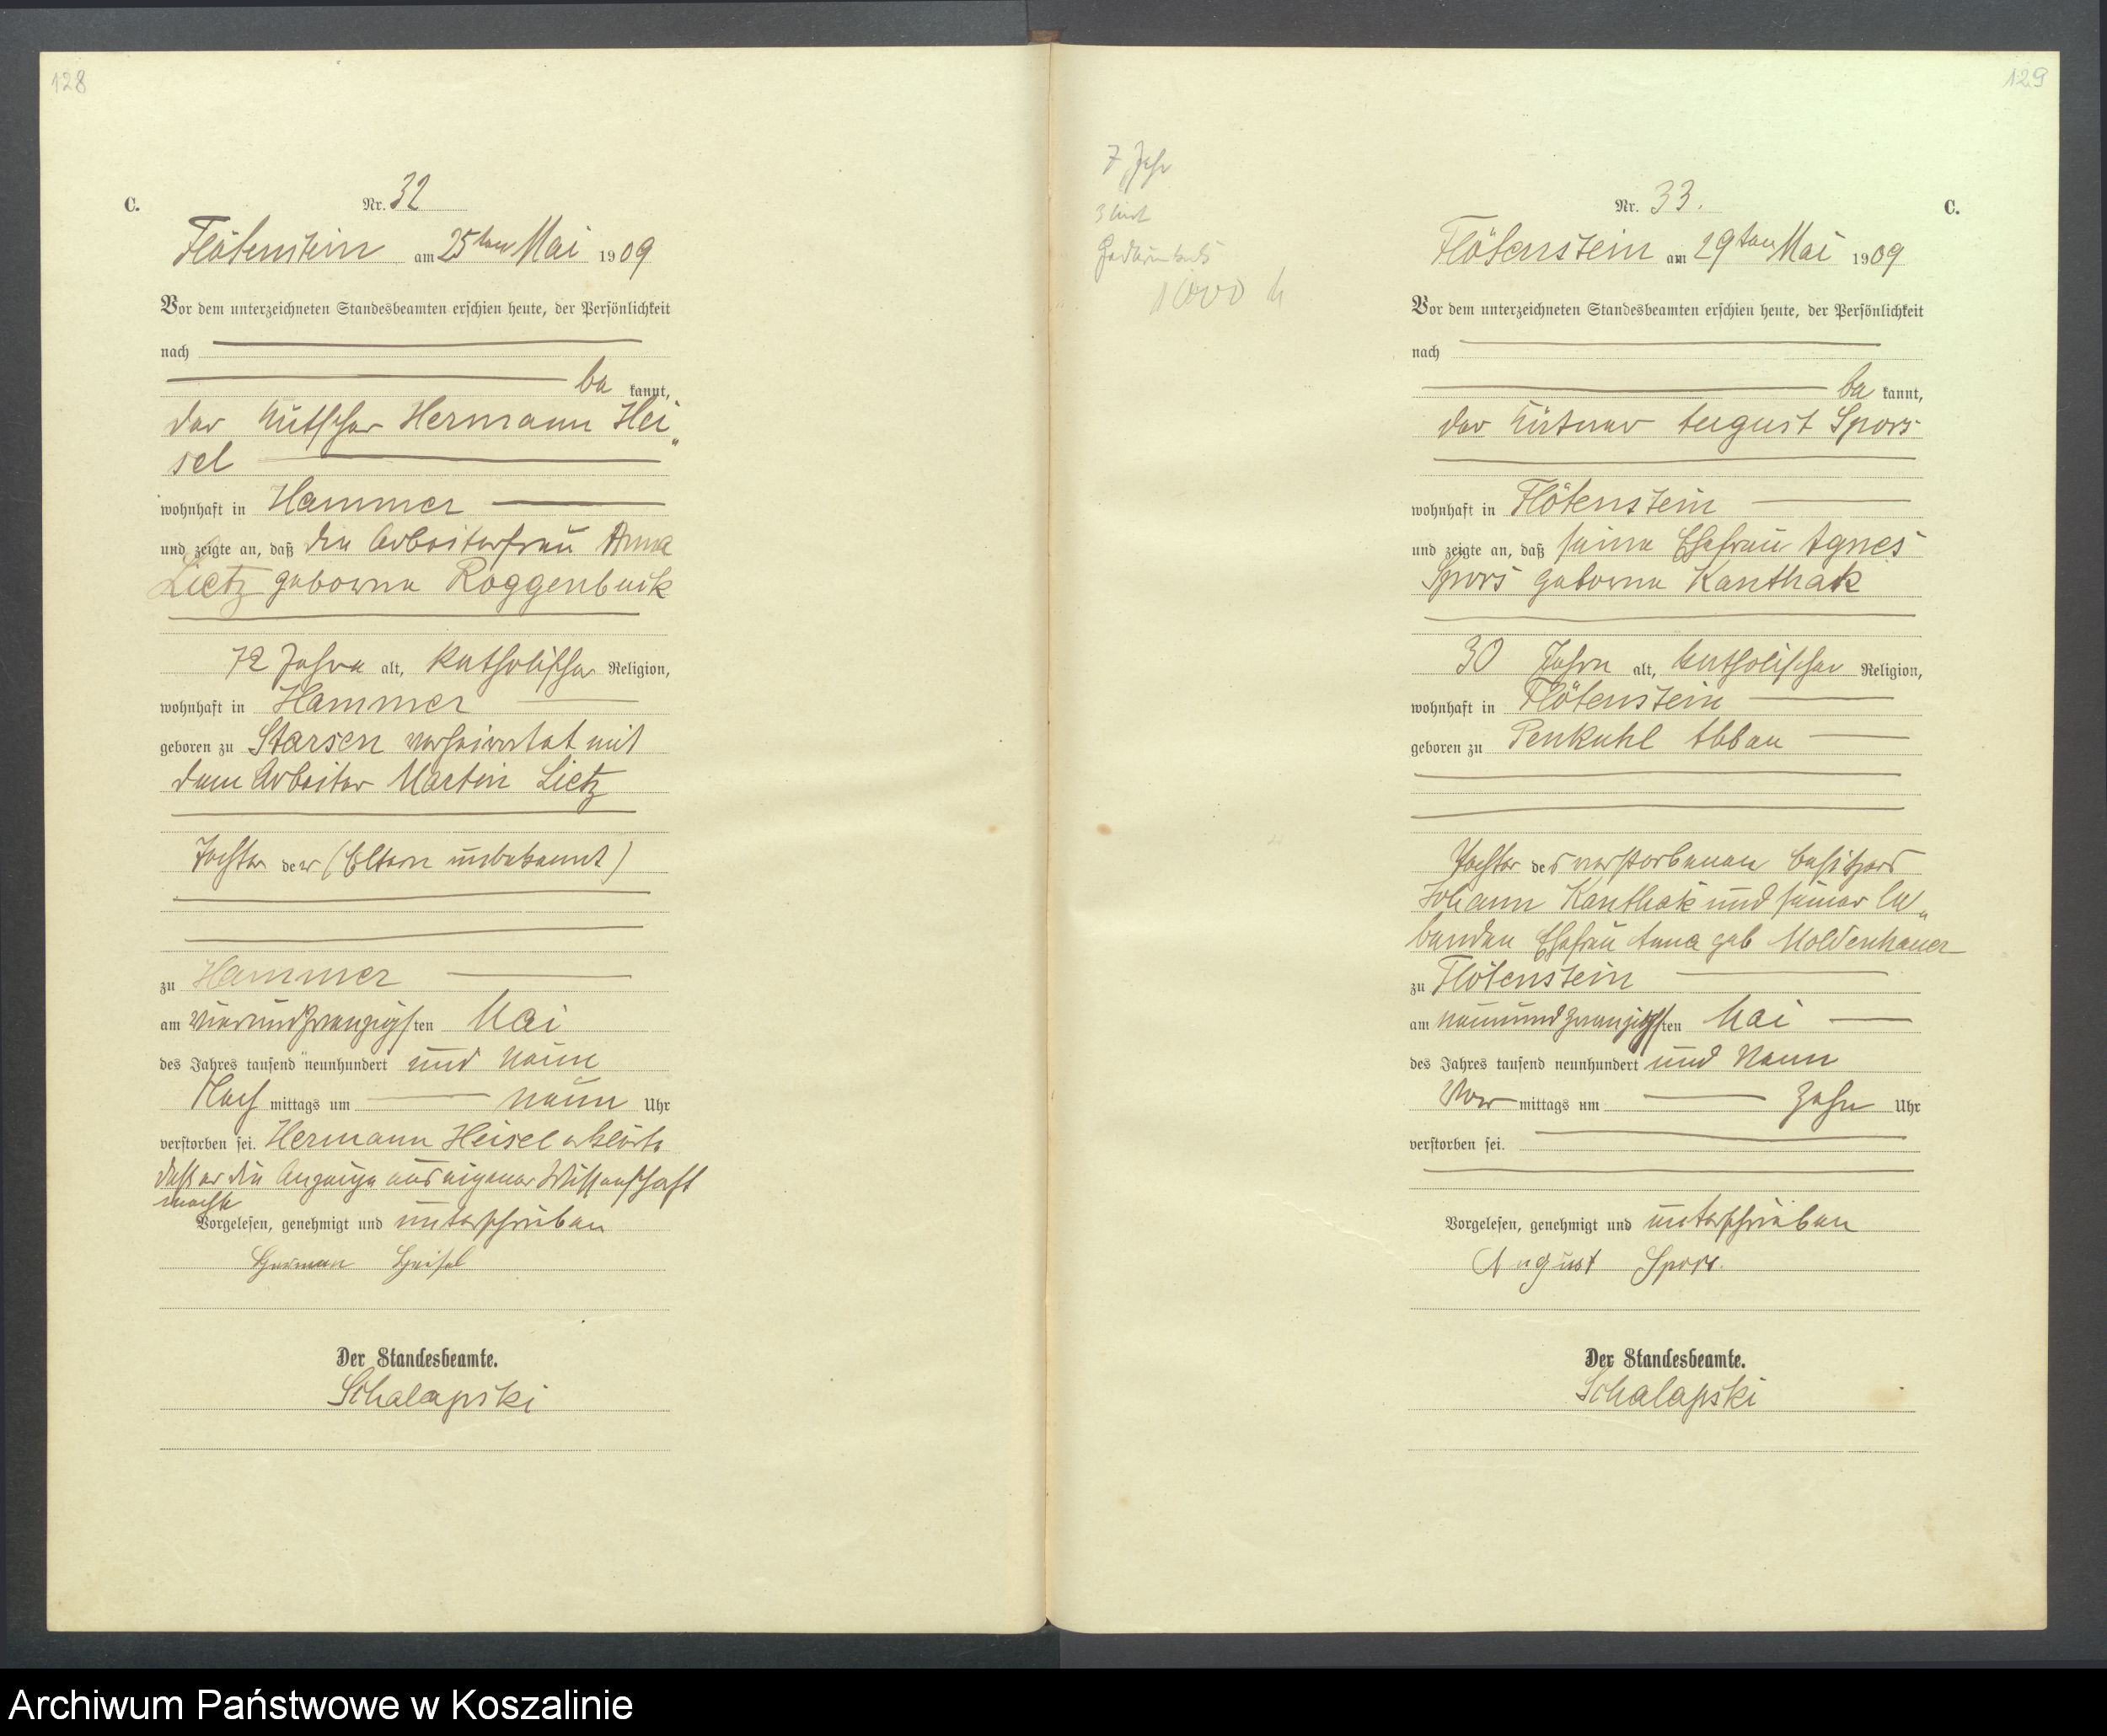 128
C.
Nr. 32
Flötenstein am 25ten Mai 1909
Vor dem unterzeichneten Standesbeamten erschien heute, der Persönlichkeit
nach
be kannt,
der Kutscher Hermann Hei„
sel
wohnhaft in Hammer
und zeigte an, daß die Arbeiterfrau Anna
Lietz geborne Roggenbuck
72 Jahre alt, katholischer Religion,
wohnhaft in Hammer
geboren zu Starsen verheiratet mit
dem Arbeiter Martin Lietz
Tochter der (Eltern unbekannt)
zu Hammer
am vierundzwanzigsten Mai
des Jahres tausend neunhundert und neun
Nach mittags um neun Uhr
verstorben sei. Hermann Heisel erklärte
daß er die Anzeige aus eigener Wissenschaft
mache
Vorgelesen, genehmigt und unterschrieben
Herman Heisel
Der Standesbeamte.
Schalapski
129
7 Jahr
1000 M
Nr. 33.
C.
Flötenstein am 29ten Mai 1909
Vor dem unterzeichneten Standesbeamten erschien heute, der Persönlichkeit
nach
be kannt,
der August Spors
wohnhaft in Flötenstein
und zeigte an, daß seine Ehefrau Agnes
Spors geborne Kanthak
30 Jahre alt, katholischer Religion,
wohnhaft in Flötenstein
geboren zu Penkuhl Abbau
Tochter des verstorbenen Besitzers
Johann Kanthak und seiner le„
benden Ehefrau Anna geb Moldenhauer
zu Flötenstein
am neunundzwanzigsten Mai
des Jahres tausend neunhundert und neun
Vor mittags um zehn Uhr
verstorben sei.
Vorgelesen, genehmigt und unterschrieben
August Spors.
Der Standesbeamte.
Schalapski
Archiwum Państwowe w Koszalinie